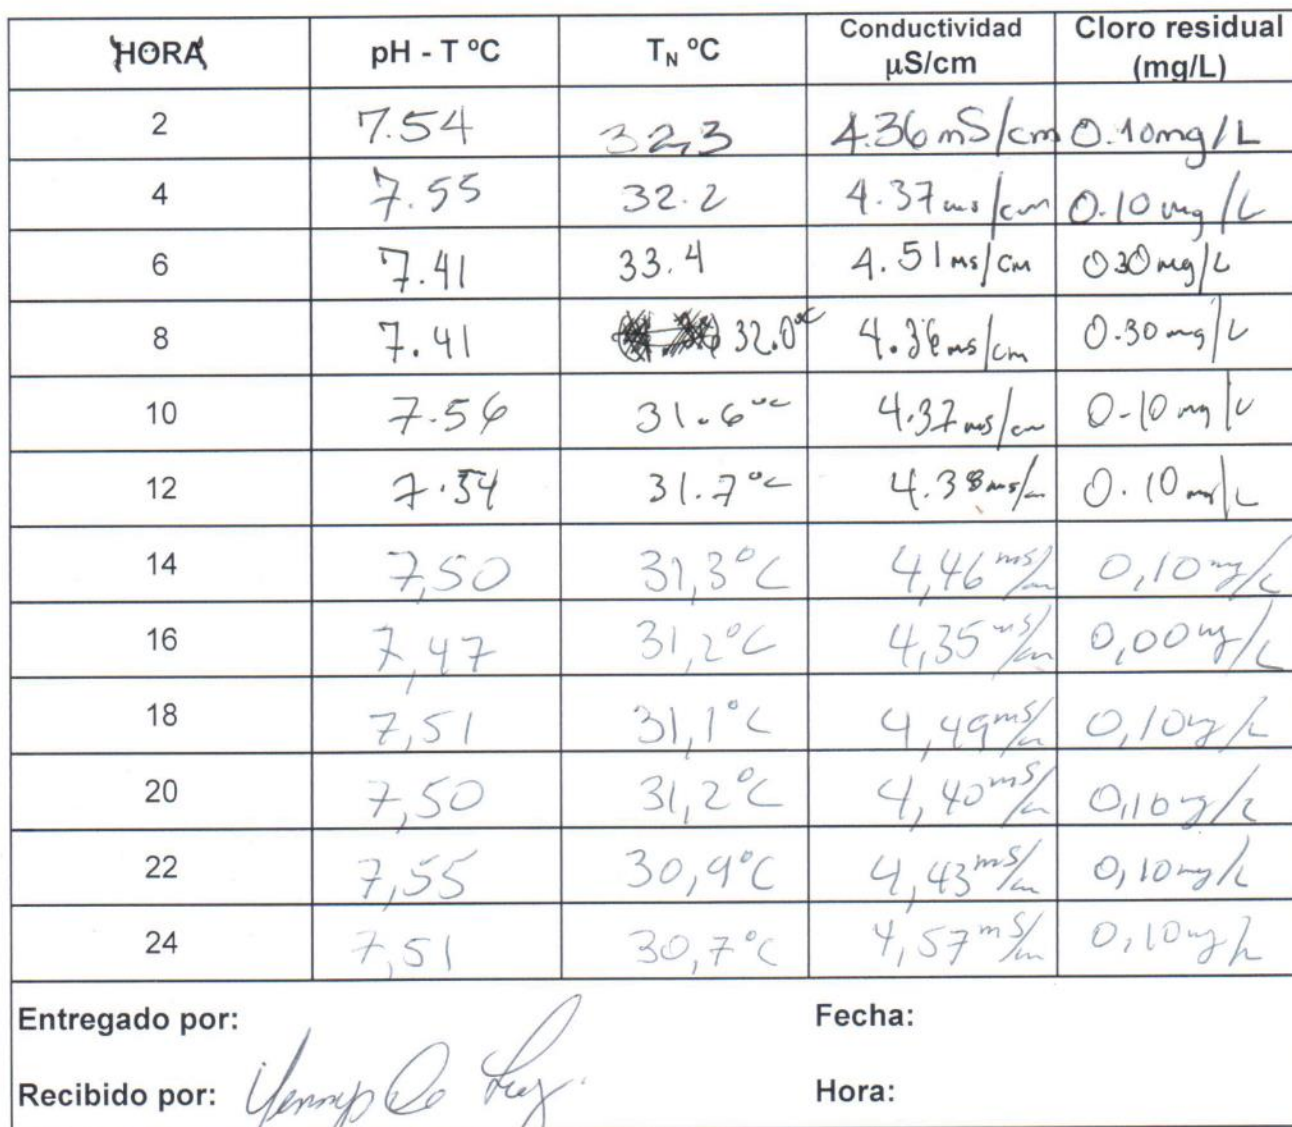 HORA pH - T ºC T_N ºC Conductividad µS/cm Cloro residual (mg/L)
2 7.54 32,3 4.36 mS/cm 0.10mg/L
4 7.55 32.2 4.37 ms/cm 0.10 mg/L
6 7.41 33.4 4.51 ms/cm 0.30 mg/L
8 7.41 32.0°C 4.36 ms/cm 0.30 mg/L
10 7.56 31.6°C 4.37 ms/cm 0.10 mg/L
12 7.54 31.7°C 4.38 ms/cm 0.10 mg/L
14 7,50 31,3°C 4,46 ms/cm 0,10 mg/L
16 7,47 31,2°C 4,35 ms/cm 0,00 mg/L
18 7,51 31,1°C 4,49 ms/cm 0,10 mg/L
20 7,50 31,2°C 4,40 ms/cm 0,10 mg/L
22 7,55 30,9°C 4,43 ms/cm 0,10 mg/L
24 7,51 30,7°C 4,57 ms/cm 0,10 mg/L
Entregado por: Fecha:
Recibido por: Hora: